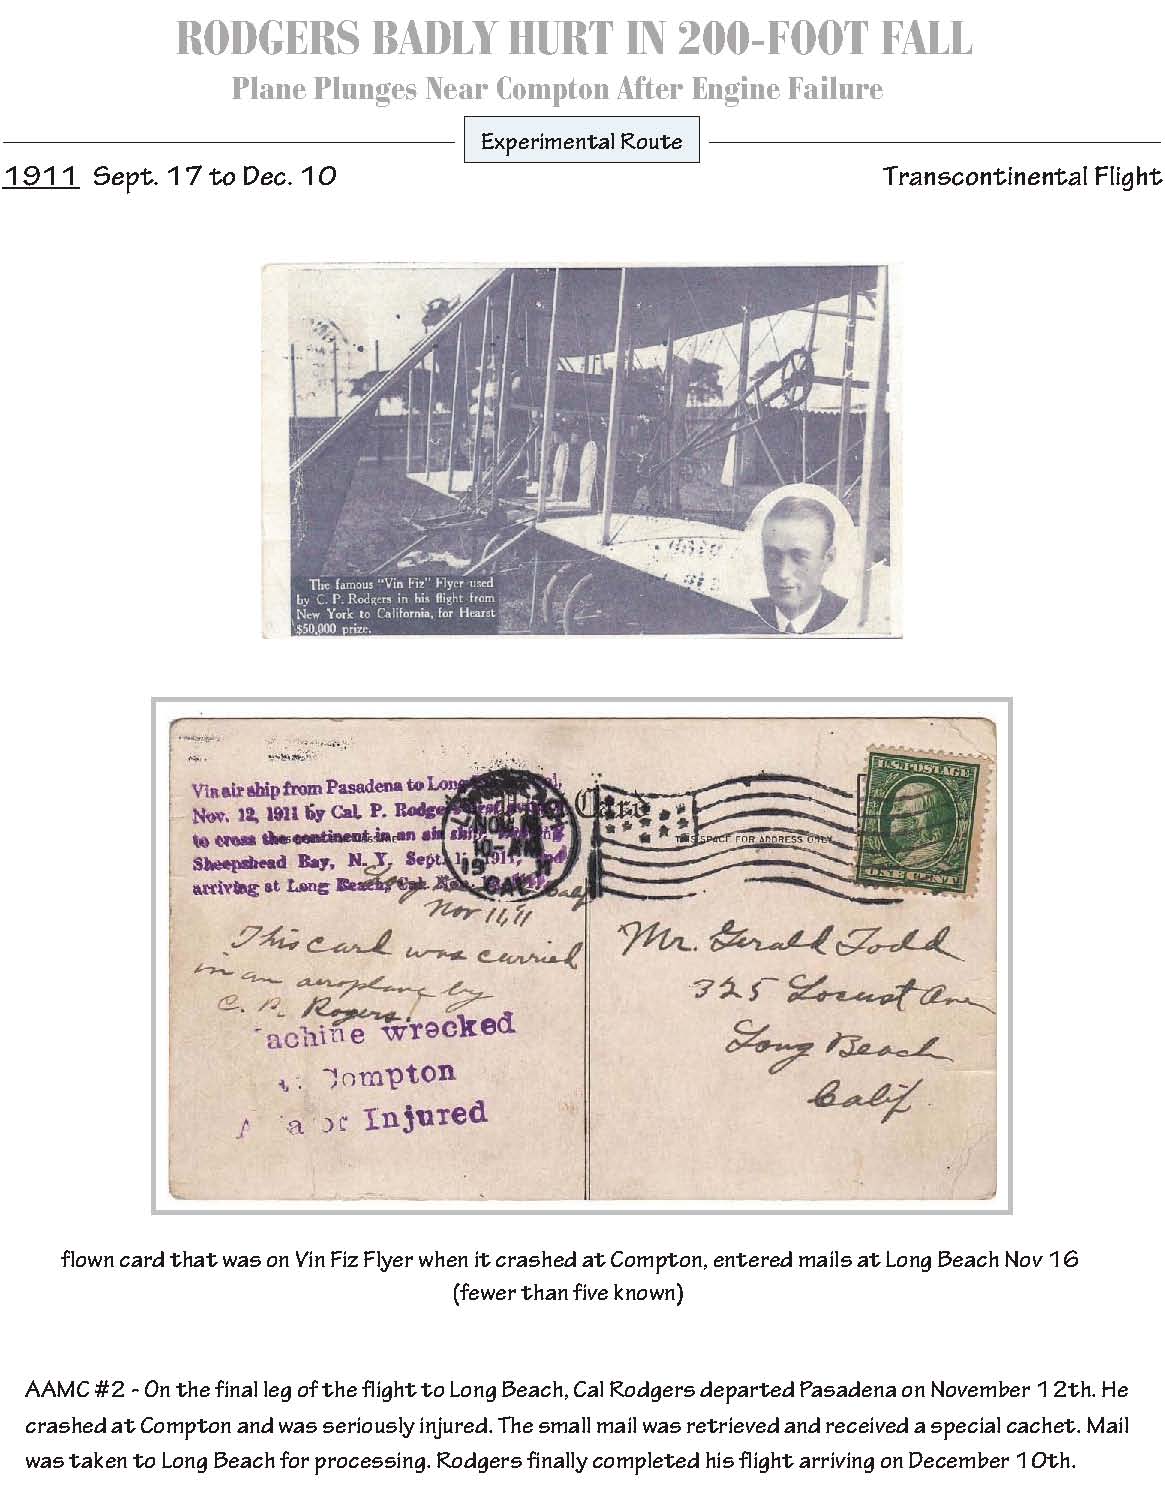 RODGERS BADLY HURT IN 200-FOOT FALL
Plane Plunges Near Compton After Engine Failure
Experimental Route
1911 Sept. 17 to Dec. 10
Transcontinental Flight
The famous "Vin Fiz" Flyer used
by C. P. Rodgers in his flight from
New York to California, for Hearst
$50,000 prize.
Via air ship from Pasadena to Long
Nov. 12, 1911 by Cal. P. Rodge
to cross the continent in an air ship
Sheepshead Bay, N. Y. Sept. 1 1911,
arriving at Long Beach, Cal. Nov.
NOV
10-AM
19 11
CAL.
Card
THIS SPACE FOR ADDRESS ONLY
U.S. POSTAGE
ONE CENT
Calif
Nov 11, '11
This card was carried
in an aeroplane by
C. P. Rogers.
achine wrecked
Compton
Injured
Mr. Gerald Todd
325 Locust Ave
Long Beach
Calif.
flown card that was on Vin Fiz Flyer when it crashed at Compton, entered mails at Long Beach Nov 16
(fewer than five known)
AAMC #2 - On the final leg of the flight to Long Beach, Cal Rodgers departed Pasadena on November 12th. He
crashed at Compton and was seriously injured. The small mail was retrieved and received a special cachet. Mail
was taken to Long Beach for processing. Rodgers finally completed his flight arriving on December 10th.